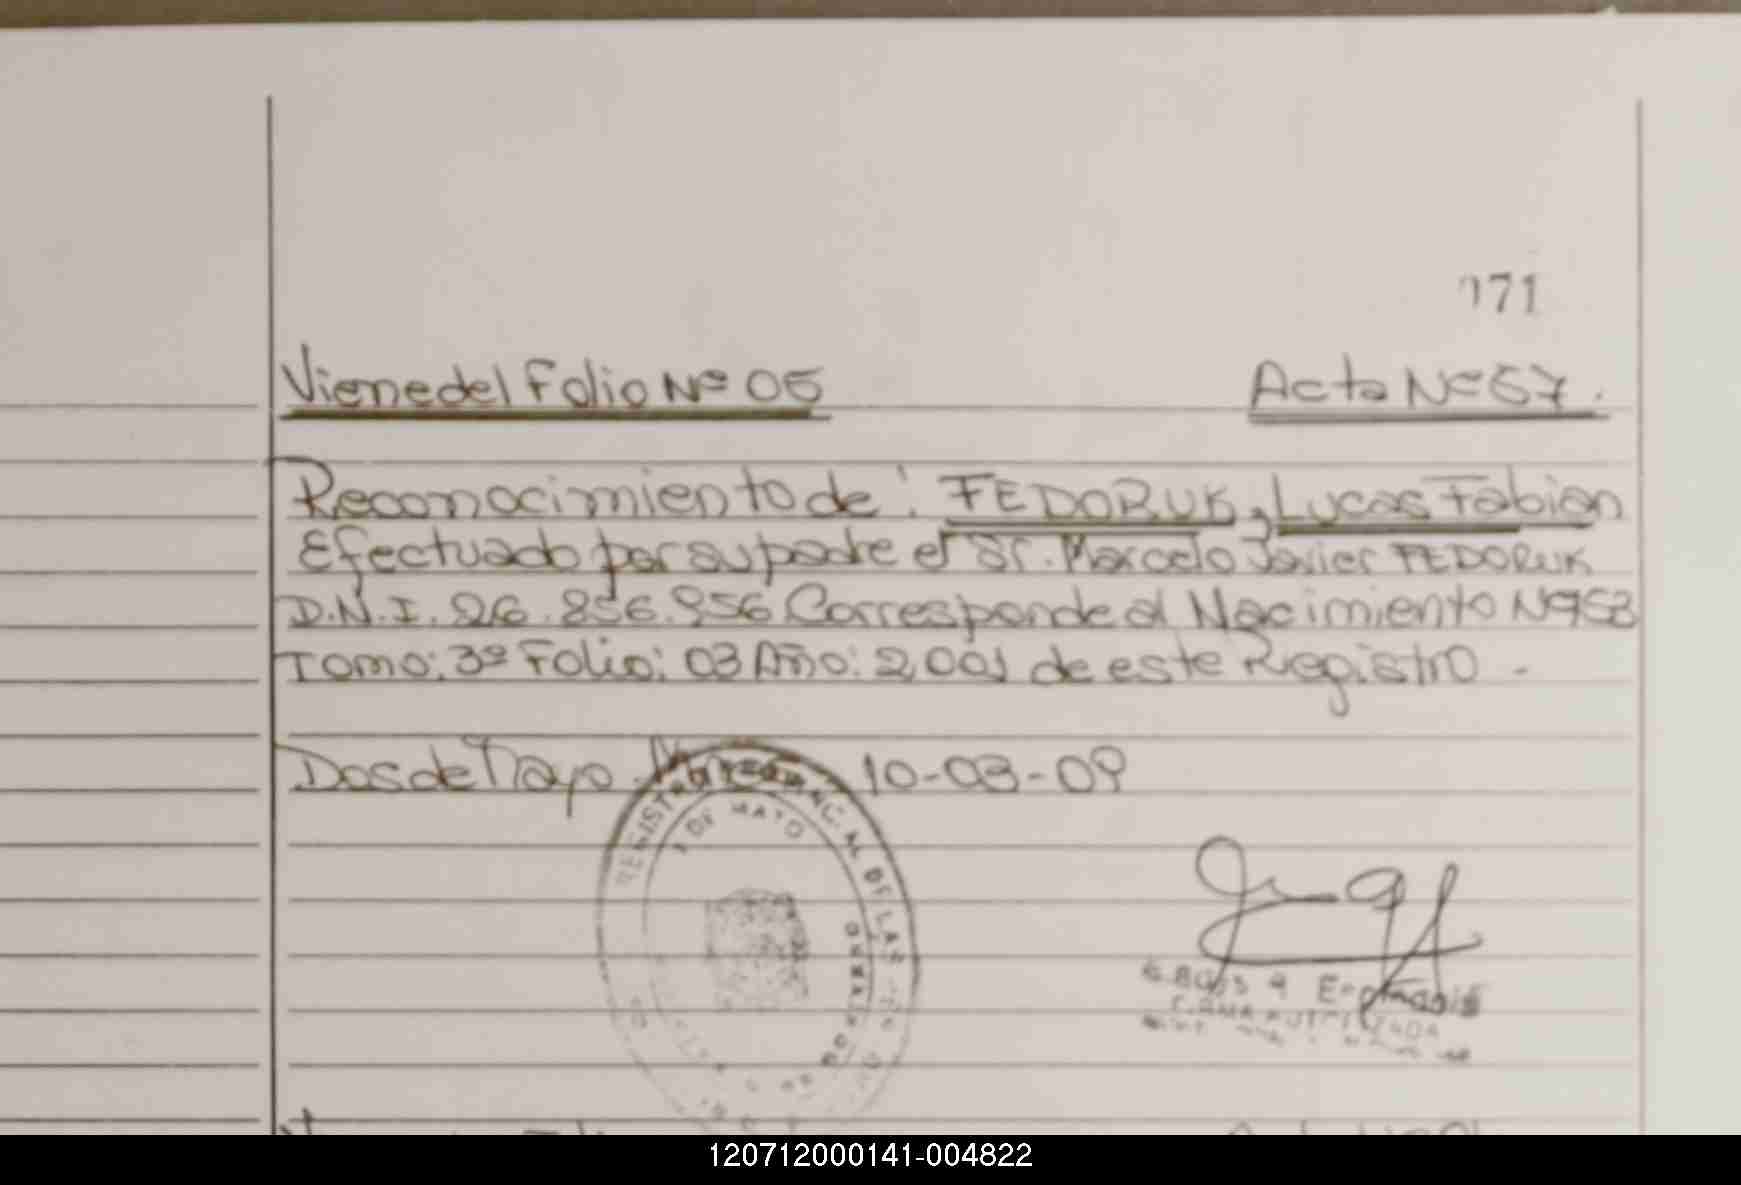 171
Viene del Folio Nº 05 Acta Nº 57.
Reconocimiento de: FEDORUK, Lucas Fabian
Efectuado por su padre el Sr. Marcelo Javier FEDORUK
D.N.I. 26.856.956 Corresponde al Nacimiento Nº 953
Tomo: 3º Folio: 03 Año: 2,001 de este Registro -
Dos de Mayo 10-03-09
REGISTRO DE LAS
DE MAYO
120712000141-004822